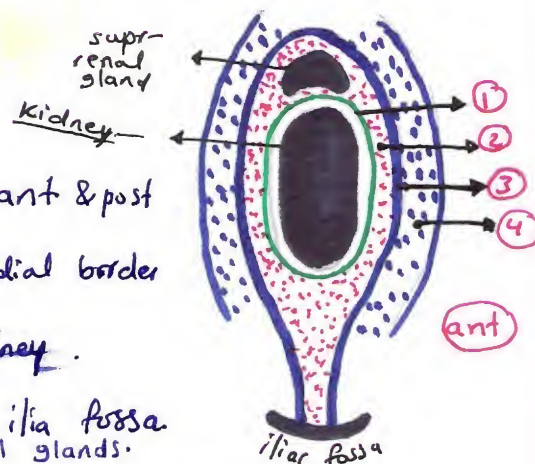 supr-
renal
gland
Kidney
ant & post
dial border
ney.
ilia fossa.
l glands.
1
2
3
4
ant
iliac fossa